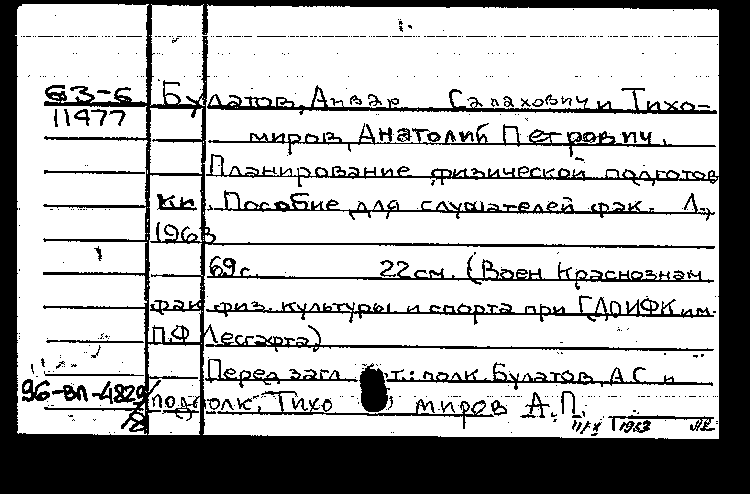 63-6
11477
Булатов, Анвар Салахович и Тихо=
миров, Анатолий Петрович.
Планирование физической подготов
ки. Пособие для слушателей фак. Л.,
1963
69 с. 22 см. (Воен Краснознам
фак физ. культуры и спорта при ГДОИФК им.
П.Ф Лесгафта)
Перед загл. : полк. Булатов, А.С и
96-вп-4829/
подполк. Тихо миров А.П.
1963